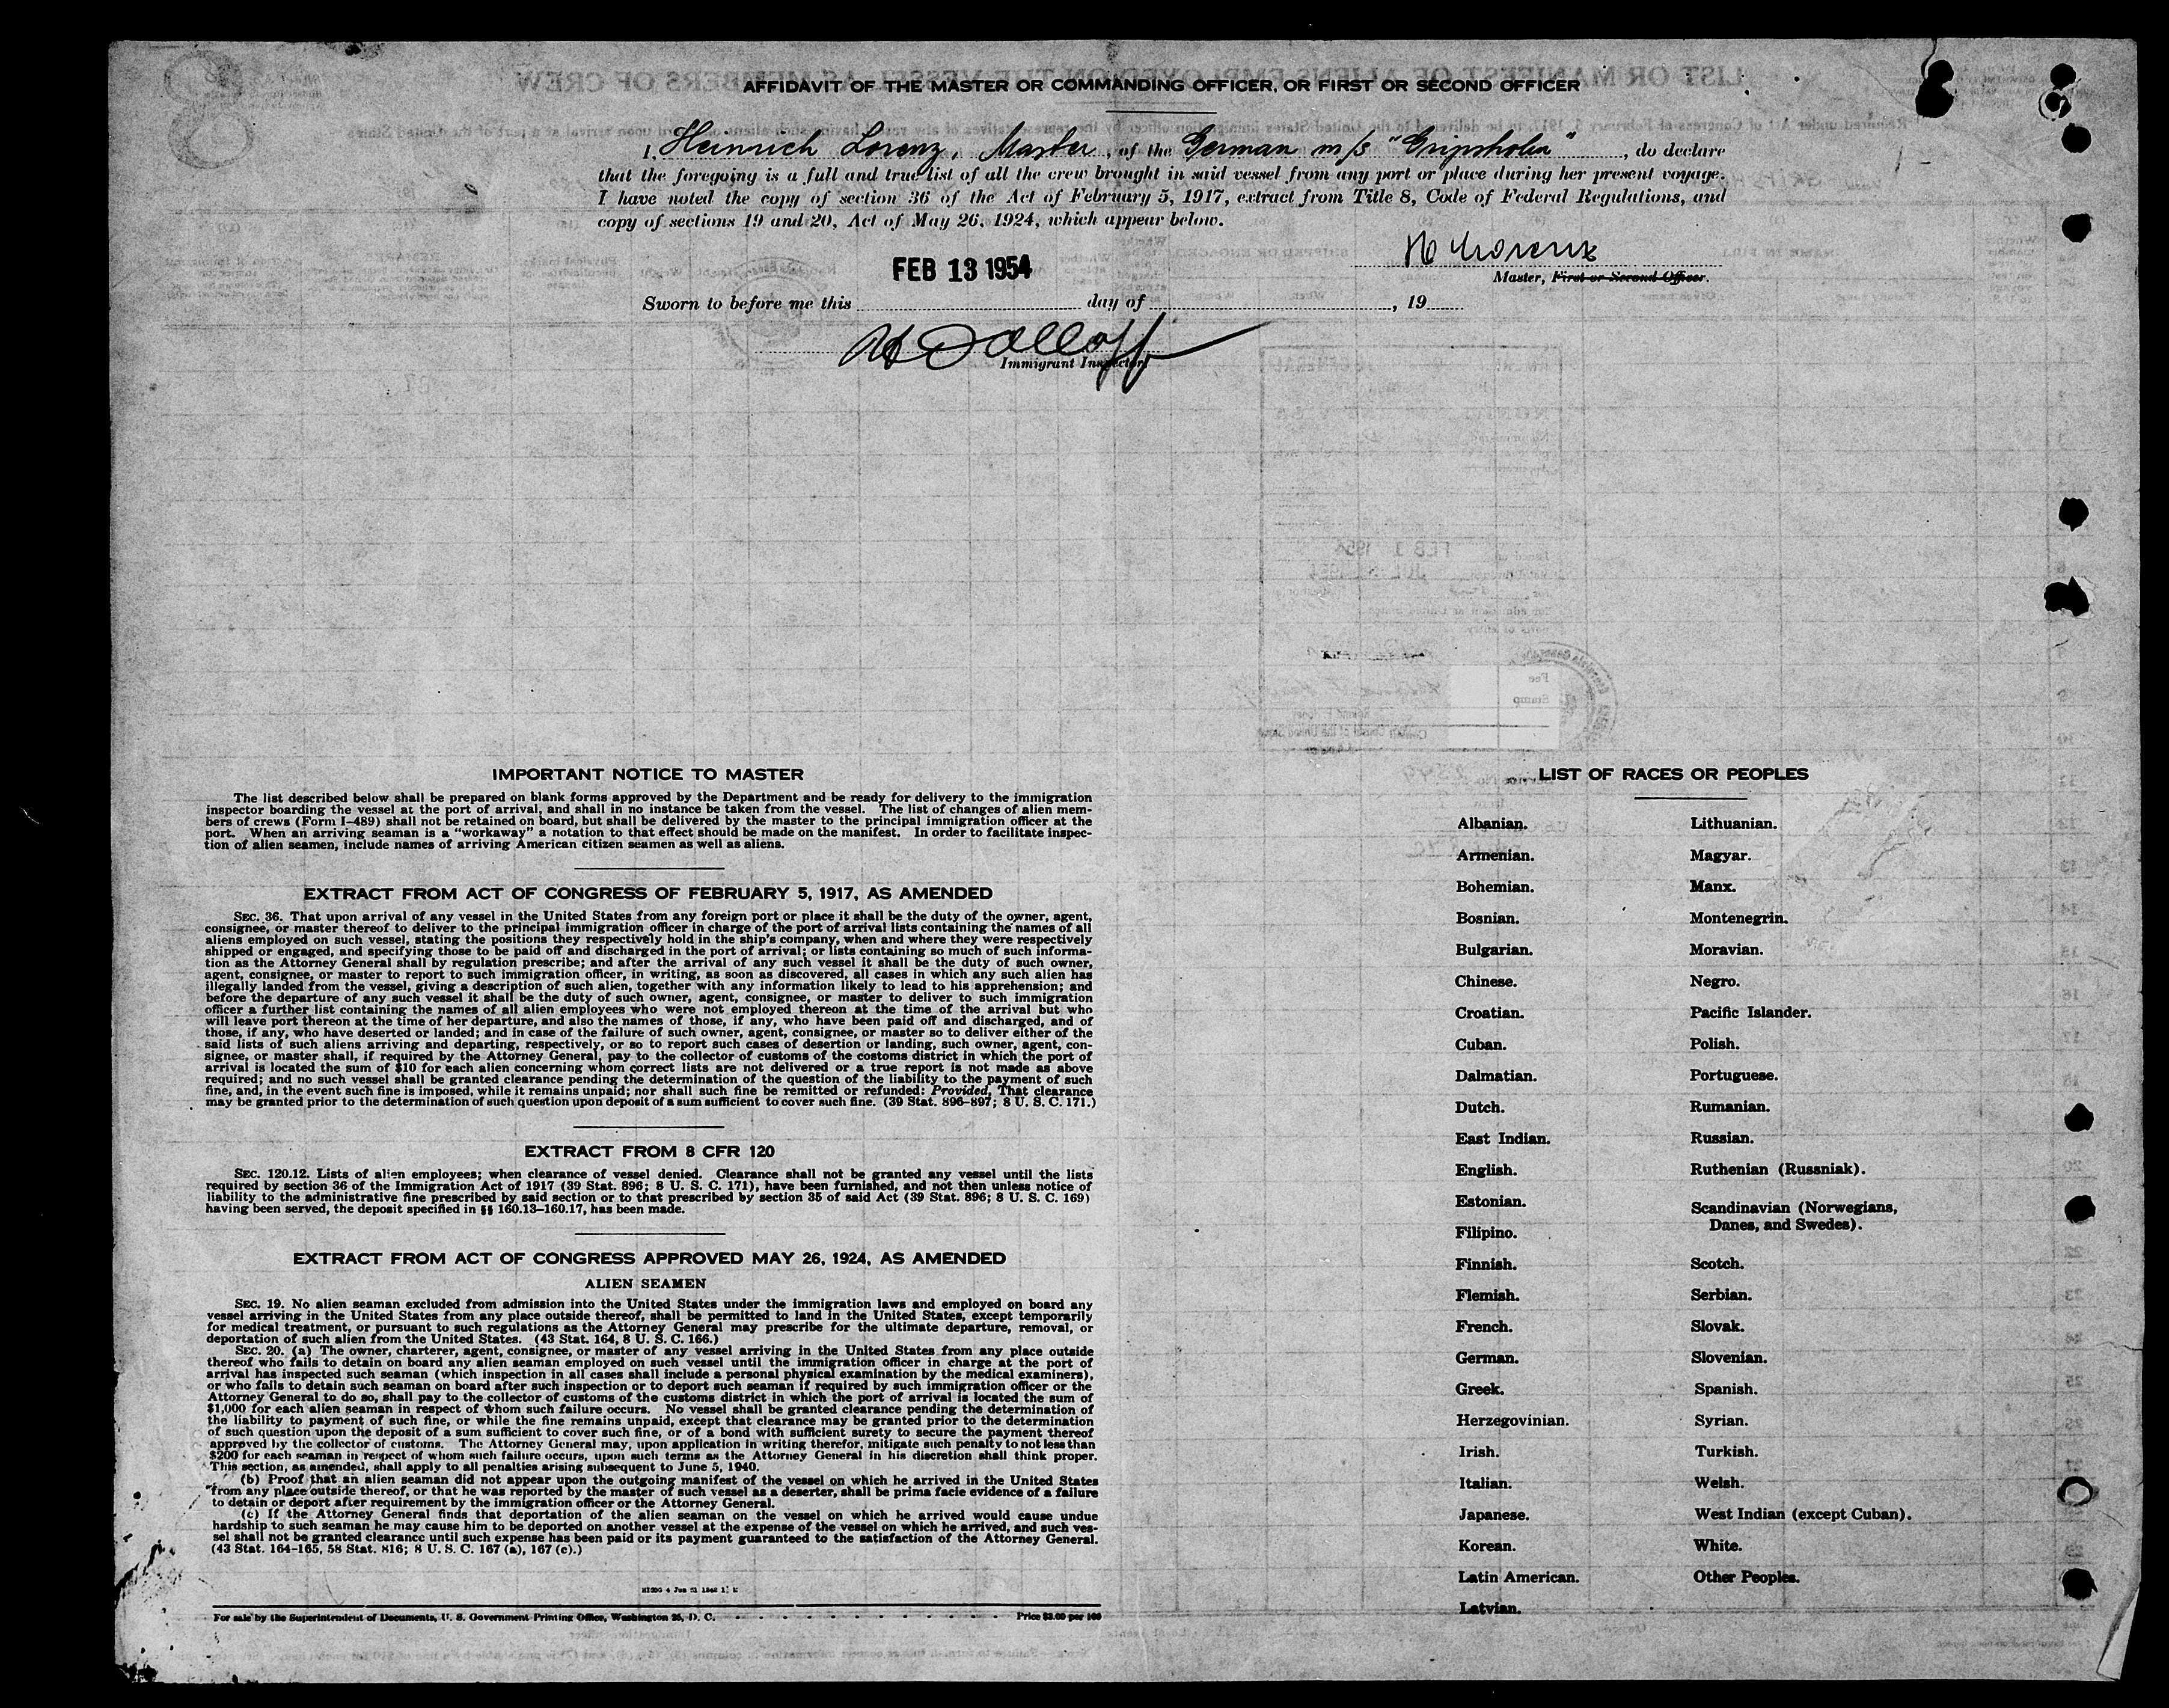 AFFIDAVIT OF THE MASTER OR COMMANDING OFFICER, OR FIRST OR SECOND OFFICER
I, Heinrich Lorenz, Master, of the German m/s "Gripsholm", do declare
that the foregoing is a full and true list of all the crew brought in said vessel from any port or place during her present voyage.
I have noted the copy of section 36 of the Act of February 5, 1917, extract from Title 8, Code of Federal Regulations, and
copy of sections 19 and 20, Act of May 26, 1924, which appear below.
H Lorenz
Master, First or Second Officer.
FEB 13 1954
Sworn to before me this day of , 19
Immigrant Inspector
IMPORTANT NOTICE TO MASTER
The list described below shall be prepared on blank forms approved by the Department and be ready for delivery to the immigration
inspector boarding the vessel at the port of arrival, and shall in no instance be taken from the vessel. The list of changes of alien mem-
bers of crews (Form I-489) shall not be retained on board, but shall be delivered by the master to the principal immigration officer at the
port. When an arriving seaman is a "workaway" a notation to that effect should be made on the manifest. In order to facilitate inspec-
tion of alien seamen, include names of arriving American citizen seamen as well as aliens.
EXTRACT FROM ACT OF CONGRESS OF FEBRUARY 5, 1917, AS AMENDED
SEC. 36. That upon arrival of any vessel in the United States from any foreign port or place it shall be the duty of the owner, agent,
consignee, or master thereof to deliver to the principal immigration officer in charge of the port of arrival lists containing the names of all
aliens employed on such vessel, stating the positions they respectively hold in the ship's company, when and where they were respectively
shipped or engaged, and specifying those to be paid off and discharged in the port of arrival; or lists containing so much of such informa-
tion as the Attorney General shall by regulation prescribe; and after the arrival of any such vessel it shall be the duty of such owner,
agent, consignee, or master to report to such immigration officer, in writing, as soon as discovered, all cases in which any such alien has
illegally landed from the vessel, giving a description of such alien, together with any information likely to lead to his apprehension; and
before the departure of any such vessel it shall be the duty of such owner, agent, consignee, or master to deliver to such immigration
officer a further list containing the names of all alien employees who were not employed thereon at the time of the arrival but who
will leave port thereon at the time of her departure, and also the names of those, if any, who have been paid off and discharged, and of
those, if any, who have deserted or landed; and in case of the failure of such owner, agent, consignee, or master so to deliver either of the
said lists of such aliens arriving and departing, respectively, or so to report such cases of desertion or landing, such owner, agent, con-
signee, or master shall, if required by the Attorney General, pay to the collector of customs of the costoms district in which the port of
arrival is located the sum of $10 for each alien concerning whom correct lists are not delivered or a true report is not made as above
required; and no such vessel shall be granted clearance pending the determination of the question of the liability to the payment of such
fine, and, in the event such fine is imposed, while it remains unpaid; nor shall such fine be remitted or refunded: Provided, That clearance
may be granted prior to the determination of such question upon deposit of a sum sufficient to cover such fine. (39 Stat. 896-897; 8 U. S. C. 171.)
EXTRACT FROM 8 CFR 120
SEC. 120.12. Lists of alien employees; when clearance of vessel denied. Clearance shall not be granted any vessel until the lists
required by section 36 of the Immigration Act of 1917 (39 Stat. 896; 8 U. S. C. 171), have been furnished, and not then unless notice of
liability to the administrative fine prescribed by said section or to that prescribed by section 35 of said Act (39 Stat. 896; 8 U. S. C. 169)
having been served, the deposit specified in §§ 160.13-160.17, has been made.
EXTRACT FROM ACT OF CONGRESS APPROVED MAY 26, 1924, AS AMENDED
ALIEN SEAMEN
SEC. 19. No alien seaman excluded from admission into the United States under the immigration laws and employed on board any
vessel arriving in the United States from any place outside thereof, shall be permitted to land in the United States, except temporarily
for medical treatment, or pursuant to such regulations as the Attorney General may prescribe for the ultimate departure, removal, or
deportation of such alien from the United States. (43 Stat. 164, 8 U. S. C. 166.)
SEC. 20. (a) The owner, charterer, agent, consignee, or master of any vessel arriving in the United States from any place outside
thereof who fails to detain on board any alien seaman employed on such vessel until the immigration officer in charge at the port of
arrival has inspected such seaman (which inspection in all cases shall include a personal physical examination by the medical examiners),
or who fails to detain such seaman on board after such inspection or to deport such seaman if required by such immigration officer or the
Attorney General to do so, shall pay to the collector of customs of the customs district in which the port of arrival is located the sum of
$1,000 for each alien seaman in respect of whom such failure occurs. No vessel shall be granted clearance pending the determination of
the liability to payment of such fine, or while the fine remains unpaid, except that clearance may be granted prior to the determination
of such question upon the deposit of a sum sufficient to cover such fine, or of a bond with sufficient surety to secure the payment thereof
approved by the collector of customs. The Attorney General may, upon application in writing therefor, mitigate such penalty to not less than
$200 for each seaman in respect of whom such failure occurs, upon such terms as the Attorney General in his discretion shall think proper.
This section, as amended, shall apply to all penalties arising subsequent to June 5, 1940.
(b) Proof that an alien seaman did not appear upon the outgoing manifest of the vessel on which he arrived in the United States
from any place outside thereof, or that he was reported by the master of such vessel as a deserter, shall be prima facie evidence of a failure
to detain or deport after requirement by the immigration officer or the Attorney General.
(c) If the Attorney General finds that deportation of the alien seaman on the vessel on which he arrived would cause undue
hardship to such seaman he may cause him to be deported on another vessel at the expense of the vessel on which he arrived, and such ves-
sel shall not be granted clearance until such expense has been paid or its payment guaranteed to the satisfaction of the Attorney General.
(43 Stat. 164-165, 58 Stat. 816; 8 U. S. C. 167 (a), 167 (c).)
For sale by the Superintendent of Documents, U. S. Government Printing Office, Washington 25, D. C. Price $3.00 per 100
LIST OF RACES OR PEOPLES
Albanian.
Armenian.
Bohemian.
Bosnian.
Bulgarian.
Chinese.
Croatian.
Cuban.
Dalmatian.
Dutch.
East Indian.
English.
Estonian.
Filipino.
Finnish.
Flemish.
French.
German.
Greek.
Herzegovinian.
Irish.
Italian.
Japanese.
Korean.
Latin American.
Latvian.
Lithuanian.
Magyar.
Manx.
Montenegrin.
Moravian.
Negro.
Pacific Islander.
Polish.
Portuguese.
Rumanian.
Russian.
Ruthenian (Russniak).
Scandinavian (Norwegians,
Danes, and Swedes).
Scotch.
Serbian.
Slovak.
Slovenian.
Spanish.
Syrian.
Turkish.
Welsh.
West Indian (except Cuban).
White.
Other Peoples.